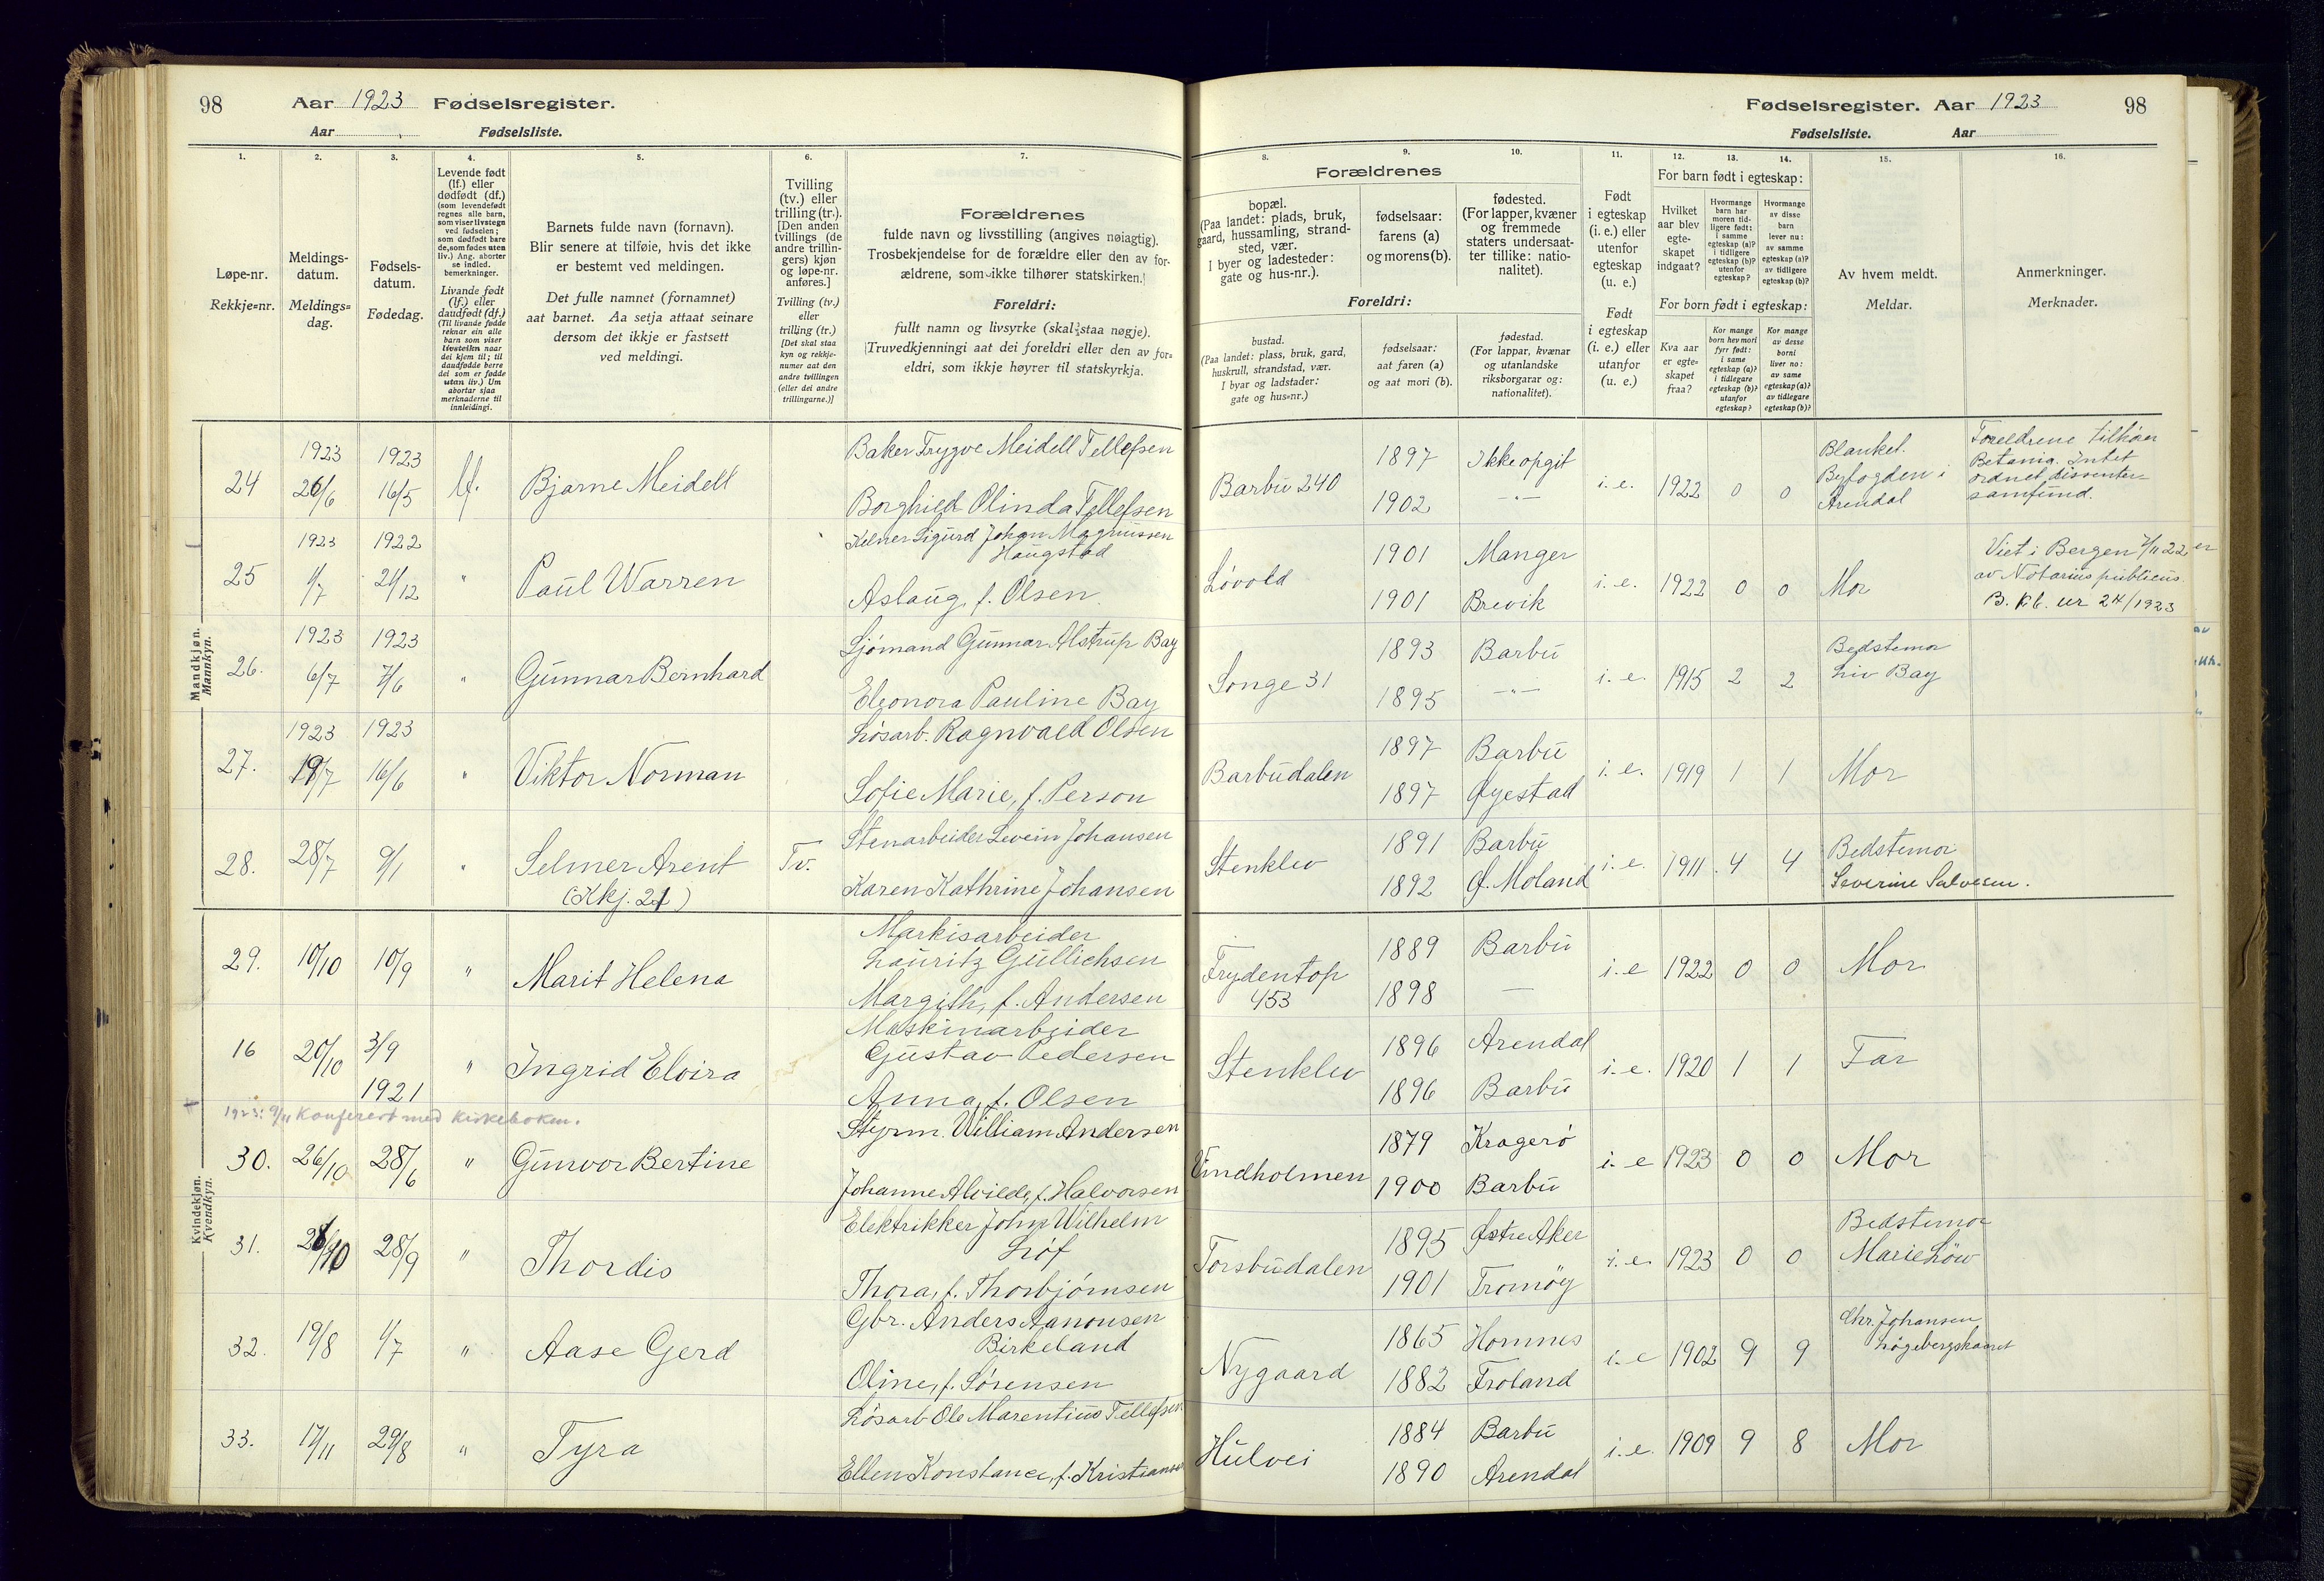 98 Aar 1923 Fødselsregister.
Aar Fødselsliste.
1. 2. 3. 4. 5. 6. 7.
Løpe-nr.
Rekkje=nr.
Meldings-
datum.
Meldings=
dag.
Fødsels-
datum.
Fødedag.
Levende født
(lf.) eller
dødfødt (df.)
(som levendefødt
regnes alle barn,
som viser livstegn
ved fødselen;
som dødfødt bare
de, som fødes uten
liv.) Ang. aborter
se indled.
bemerkninger.
Livande født
(lf.) eller
daudfødt (df.)
(Til livande fødde
reknar ein alle
barn som viser
livsteikn naar
dei kjem til; til
daudfødde berre
dei som er fødde
utan liv.) Um
abortar sjaa
merknaderne til
innleidingi.
Barnets fulde navn (fornavn).
Blir senere at tilføie, hvis det ikke
er bestemt ved meldingen.
Det fulle namnet (fornamnet)
aat barnet. Aa setja attaat seinare
dersom det ikkje er fastsett
ved meldingi.
Tvilling
(tv.) eller
trilling (tr.).
[Den anden
tvillings (de
andre trillin-
gers) kjøn
og løpe-nr.
anføres.]
Tvilling (tv.)
eller
trilling (tr.)
[Det skal staa
kyn og rekkje-
numer aat den
andre tvillingen
(eller dei andre
trillingarne.)]
Forældrenes
fulde navn og livsstilling (angives nøiagtig).
Trosbekjendelse for de forældre eller den av for-
ældrene, som ikke tilhører statskirken.
Foreldri:
fullt namn og livsyrke (skal staa nøgje).
(Truvedkjenningi aat dei foreldri eller den av for=
eldri, som ikkje høyrer til statskyrkja.
Mandkjøn.
Mankyn.
1923 1923 Baker Trygve Meidell Tellefsen
24 26/6 16/5 lf. Bjarne Meidell
Borghild Olinda Tellefsen
1923 1922 Kelner Sigurd Johan Magnussen
Haugstad
25 1/7 21/12 " Paul Warren
Aslaug, f. Olsen
1923 1923 Sjømand Gunnar Alstrup Bay
26. 6/7 7/6 " Gunnar Bernhard
Eleonora Pauline Bay
1923 1923 Løsarb. Ragnvald Olsen
27. 19/7 16/6 " Viktor Norman
Sofie Marie, f. Person
Stenarbeider Severin Johansen
28. 28/7 9/1 " Selmer Arent Tv.
(Kkj. 21) Karen Kathrine Johansen
Kvindekjøn.
Kvendkyn.
Markisarbeider
29. 10/10 10/9 " Marit Helena Lauritz Gullichsen
Margith, f. Andersen
Maskinarbeider
16 20/10 3/9 " Ingrid Elvira Gustav Pedersen
1921 Anna, f. Olsen
1923: 9/11 Konferert med kirkeboken.
Styrm. William Andersen
30. 26/10 28/6 " Gunvor Bertine
Johanne Alvilde, f. Halvorsen
Elektrikker John Wilhelm
31. 28/9 " Thordis Løf
Thora, f. Thorbjørnsen
Gbr. Anders Aanonsen
32. 19/8 1/7 " Aase Gerd Birkeland
Oline, f. Sørensen
Løsarb Ole Marentius Tellefsen
33. 17/11 29/8 " Tyra
Ellen Konstance, f. Kristiansen
Fødselsregister. Aar 1923 98
Fødselsliste. Aar
8. 9. 10. 11. 12. 13. 14. 15. 16.
Forældrenes
bopæl.
(Paa landet: plads, bruk,
gaard, hussamling, strand-
sted, vær.
I byer og ladesteder:
gate og hus-nr.).
fødselsaar:
farens (a)
og morens (b).
fødested.
(For lapper, kvæner
og fremmede
staters undersaat-
ter tillike: natio-
nalitet).
Foreldri:
bustad.
(Paa landet: plass, bruk, gard,
huskrull, strandstad, vær.
I byar og ladstader:
gate og hus=nr.)
fødselsaar:
aat faren (a)
og aat mori (b).
fødestad.
(For lappar, kvænar
og utanlandske
riksborgarar og:
nationalitet).
Født
i egteskap
(i. e.) eller
utenfor
egteskap
(u. e.)
Født
i egteskap
(i. e.) eller
utanfor
(u. e.)
For barn født i egteskap:
Hvilket
aar blev
egte-
skapet
indgaat?
Hvormange
barn har
moren tid-
ligere født:
i samme
egteskap (a)?
i tidligere
egteskap (b)?
utenfor
egteskap?
Hvormange
av disse
barn
lever nu:
av samme
egteskap (a)?
av tidligere
egteskap (b)?
For born født i egteskap:
Kva aar
er egte=
skapet
fraa?
Kor mange
born hev mori
fyrr født:
i same
egteskap (a)?
i tidlegare
egteskap (b)?
utanfor
egteskap?
Kor mange
av desse
borni
liver no:
av same
egteskap (a)?
av tidlegare
egteskap (b)?
Av hvem meldt.
Meldar.
Anmerkninger.
Merknader.
Barbu 240 1897 Ikke opgit i. e. 1922 0 0
1902 -"-
Blanket.
Byfogden i
Arendal
Foreldrene tilhører
Betania. Intet
ordnet dissenter-
samfund.
Løvold 1901 Manger i. e. 1922 0 0 Mor
1901 Brevik
Viet i Bergen 7/11 22
av Notarius publicus.
B. kb. nr 24/1923
Songe 31 1893 Barbu i. e. 1915 2 2 Bedstemor
1895 -"- Liv Bay
Barbudalen 1897 Barbu i. e. 1919 1 1 Mor
1897 Øyestad
Stenklev 1891 Barbu i. e. 1911 4 4 Bedstemor
1892 Ø. Moland Severine Salvesen.
Frydentop 1889 Barbu i. e 1922 0 0 Mor
453 1898 —
Stenklev 1896 Arendal i. e. 1920 1 1 Far
1896 Barbu
Vindholmen 1879 Kragerø i. e 1923 0 0 Mor
1900 Barbu
Torsbudalen 1895 Østre Aker i. e. 1923 0 0 Bedstemor
1901 Tromøy Marie Löw
Nygaard 1865 Homnes i. e 1902 9 9 Chr. Johansen
1882 Froland
Hulvei 1884 Barbu i. e. 1909 9 8 Mor
1890 Arendal